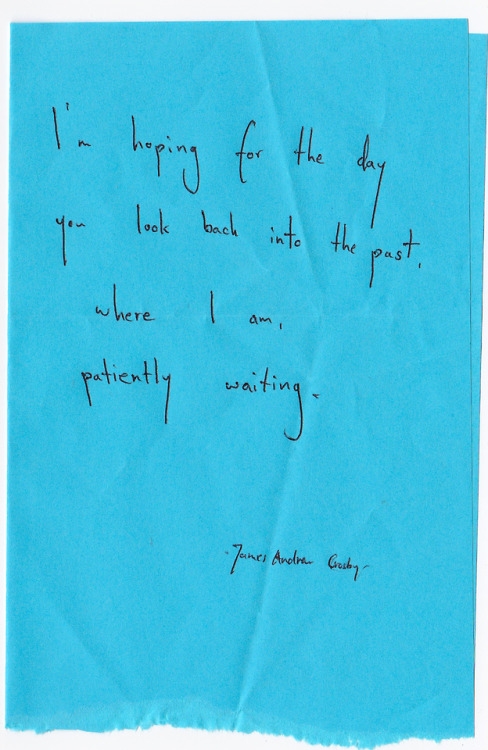 I'm hoping for the day
you look back into the past,
where I am,
patiently waiting.
-James Andrew Crosby-